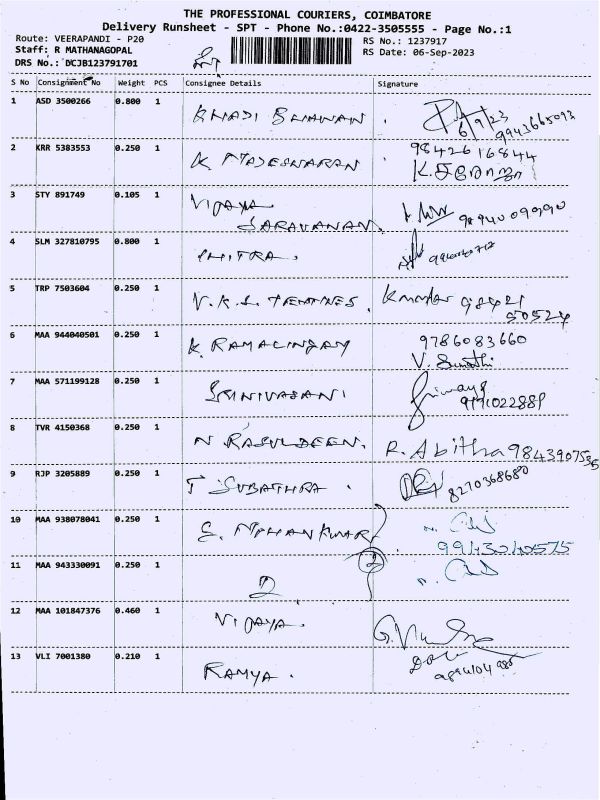 THE PROFESSIONAL COURIERS, COIMBATORE
Delivery Runsheet - SPT - Phone No.:0422-3505555 - Page No.:1
Route: VEERAPANDI - P20
RS No.: 1237917
Staff: R MATHANAGOPAL
RS Date: 06-Sep-2023
DRS No.: DCJB123791701
S No Consignment No Weight PCS Consignee Details Signature
1 ASD 3500266 0.800 1 KHADI BHAWAN . 6/9/23
9943665093
2 KRR 5383553 0.250 1 9842616844
K. சரோஜா
3 STY 891749 0.105 1 VIJAYA
SARAVANAN
4 SLM 327810795 0.800 1 CHITRA .
5 TRP 7503604 0.250 1 V.K.S. 98421
50524
6 MAA 944040501 0.250 1 K RAMALINGAM 9786083660
V. Sumathi
7 MAA 571199128 0.250 1 SRINIVASAN 9791022889
8 TVR 4150368 0.250 1 N RASULDEEN. R. Abitha 9843907535
9 RJP 3205889 0.250 1 T SUBATHRA . 8270368680
10 MAA 938078041 0.250 1 S. MOHAN KUMAR
9943040575
11 MAA 943330091 0.250 1 2 2
12 MAA 101847376 0.460 1 VIJAYA .
13 VLI 7001380 0.210 1 RAMYA .